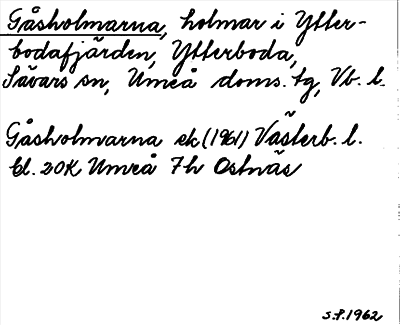 Gåsholmarna, holmar i Ytter-
bodafjärden, Ytterboda,
Sävars sn, Umeå doms. tg, Vb. l.
Gåsholmarna ek (1961) Västerb. l.
bl. 20K Umeå 7h Ostnäs
s.f. 1962